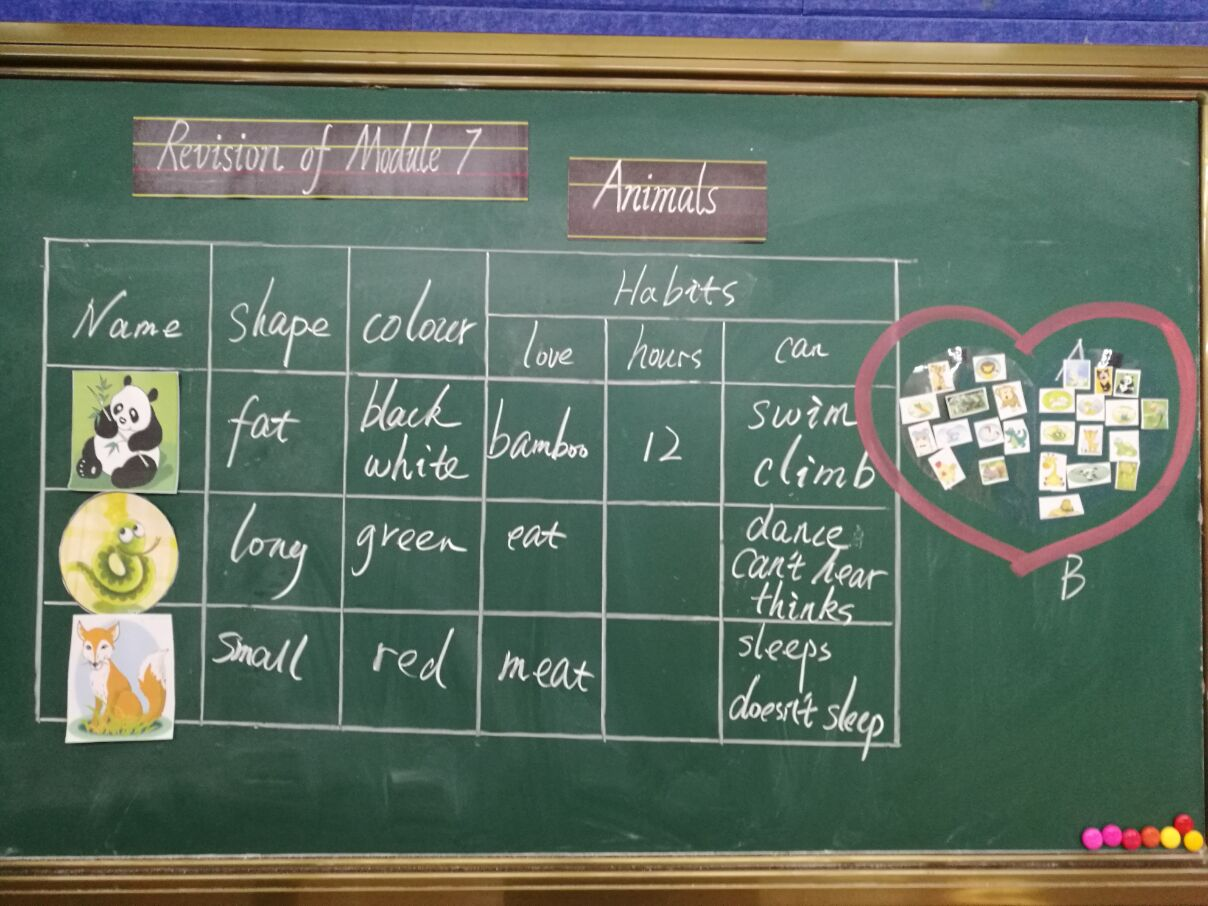 Revision of Module 7
Animals
Name shape colour Habits
love hours can
fat black white bamboo 12 swim climb
long green eat dance can't hear thinks
small red meat sleeps doesn't sleep
A
B